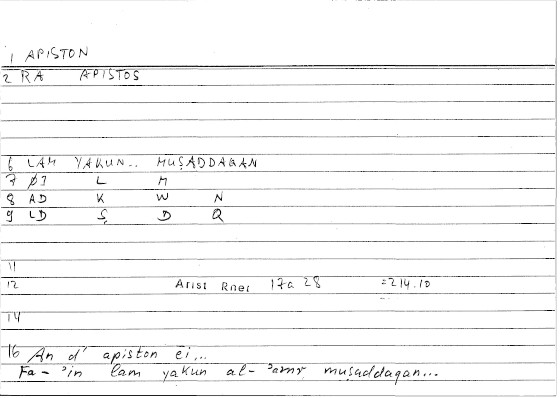 1 APISTON
2 RA APISTOS
6 LAM YAKUN.. MUṢADDAQAN
7 ØJ L M
8 AD K W N
9 LD Ṣ D Q
11
12 Arist Rhet 17a 28 =214.10
14
16 An d' apiston ei...
Fa-'in lam yakun al-'amr muṣaddaqan...